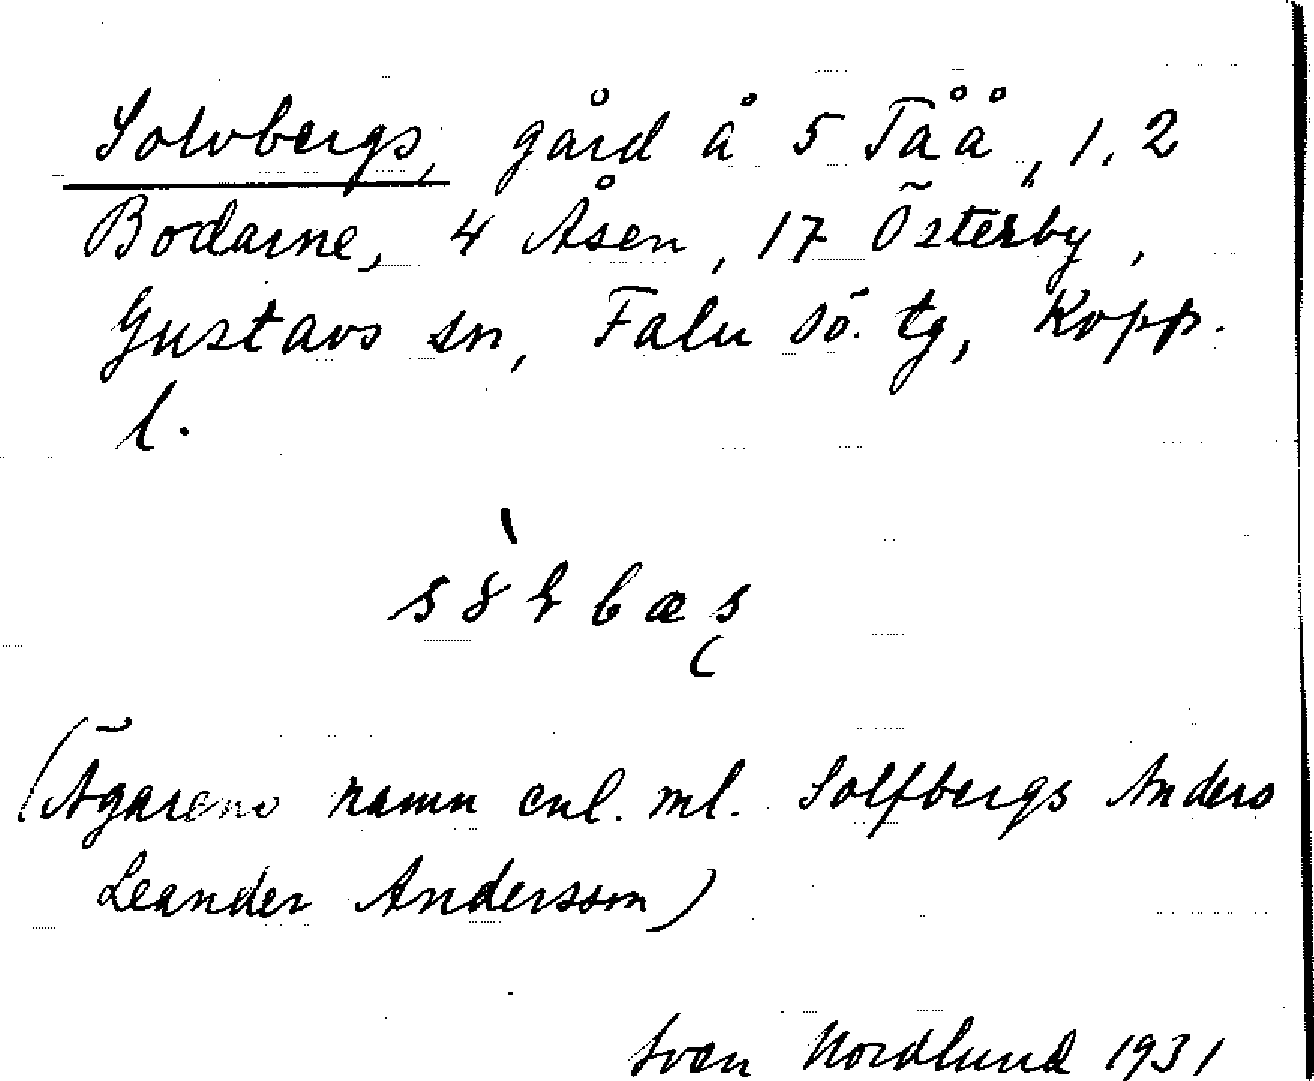 Solvbergs, gård å 5 Tåå, 1, 2
Bodarne, 4 Åsen, 17 Österby,
Gustavs sn, Falu sö. tg, Kopp.
l.
(Ägarens namn enl. ml. Solfbergs Anders
Leander Andersson)
Sven Nordlund 1931